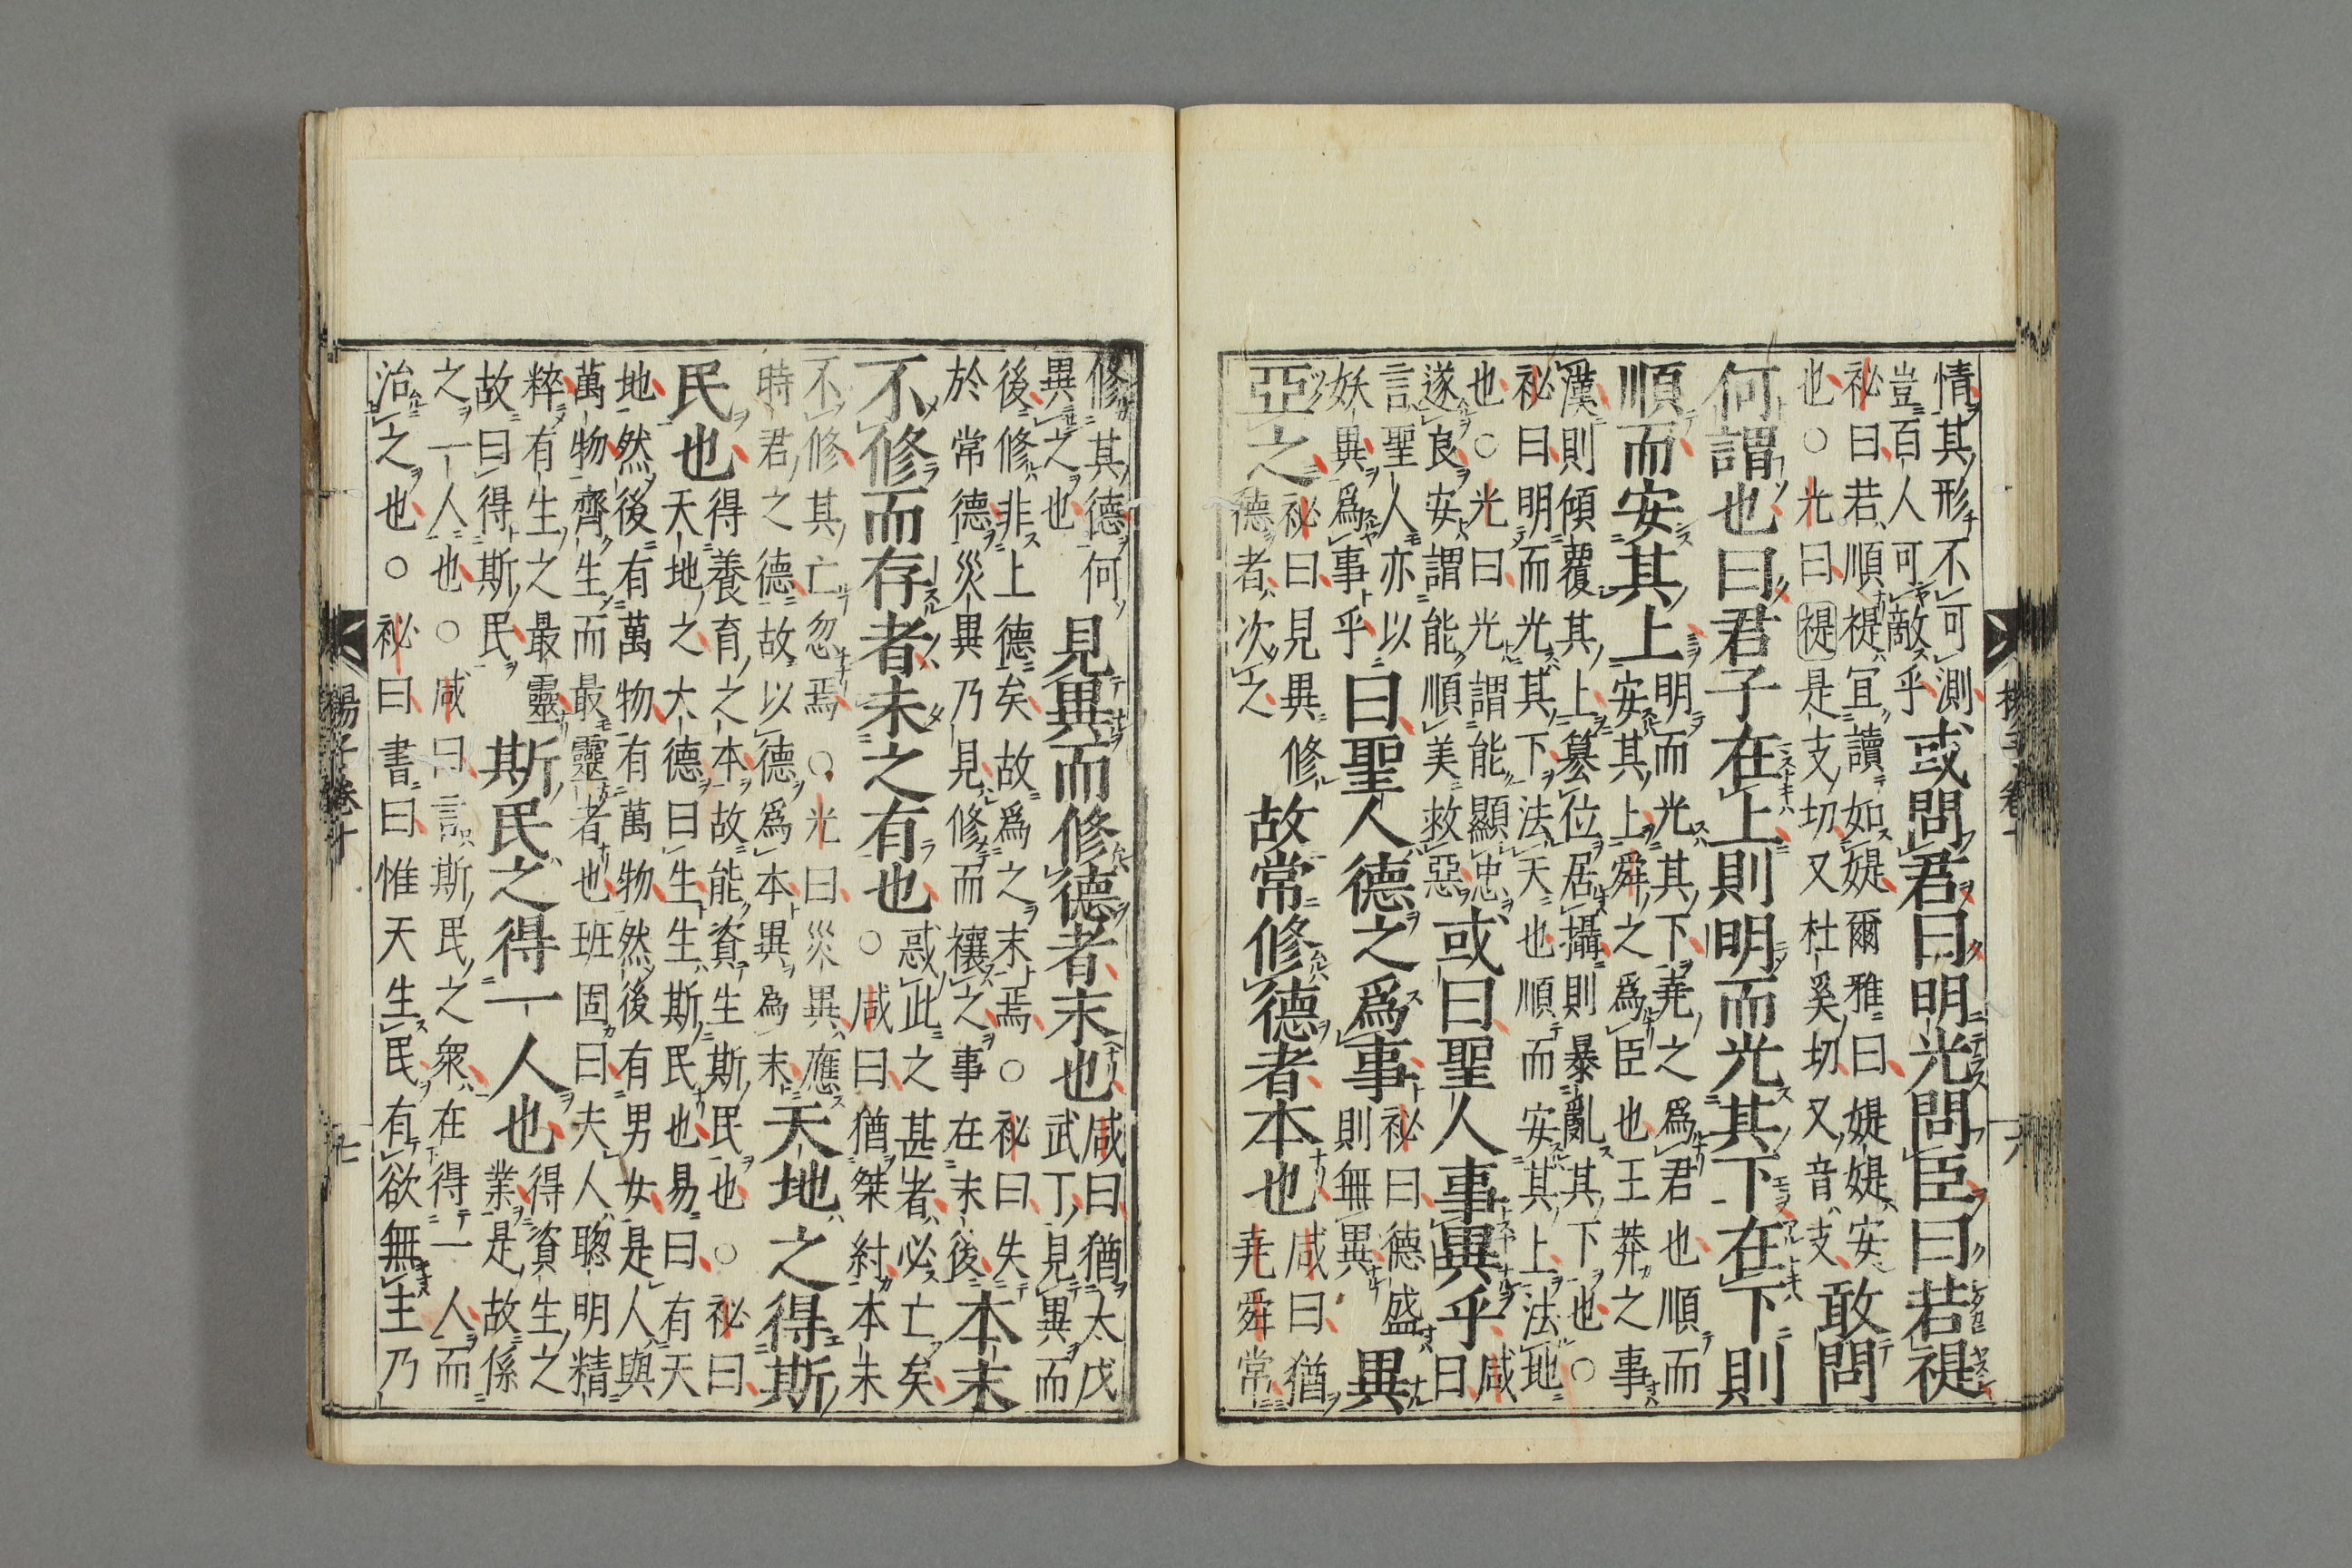 情其形不可測
豈百人可敵乎
或問君曰明光問臣曰若禔
祕曰若順禔宜讀如媞爾雅曰媞媞安
也○光曰禔是支切又杜奚切又音支
敢問
何謂也曰君子在上則明而光其下在下則
順而安其上
明而光其下堯之爲君也順而
安其上舜之爲臣也王莽之事
漢則傾覆其上簒位居攝則暴亂其下也○
祕曰明而光其下法天也順而安其上法地
也○光曰光謂能顯忠
遂良安謂能順美救惡
或曰聖人事異乎
咸
曰
言聖人亦以
妖異爲事乎
曰聖人德之爲事
祕曰德盛
則無異
異
亞之
祕曰見異修
德者次之
故常修德者本也
咸曰猶
堯舜常
修其德何
異之也
見異而修德者末也
咸曰猶太戊
武丁見異而
後修非上德矣故爲之末焉○祕曰失
於常德災異乃見修而禳之事在末後
本末
不修而存者未之有也
惑此之甚者必亡矣
○咸曰猶桀紂本末
不修其亡忽焉○光曰災異應
時君之德故以德爲本異爲末
天地之得斯
民也
得養育之本故能資生斯民也○祕曰
天地之大德曰生生斯民也易曰有天
地然後有萬物有萬物然後有男女是人與
萬物齊生而最靈者也班固曰夫人聰明精
粹有生之最靈
故曰得斯民
斯民之得一人也
得資生之
業是故係
之一人也○咸曰言斯民之衆在得一人而
治之也○祕曰書曰惟天生民有欲無主乃
楊子卷十
七